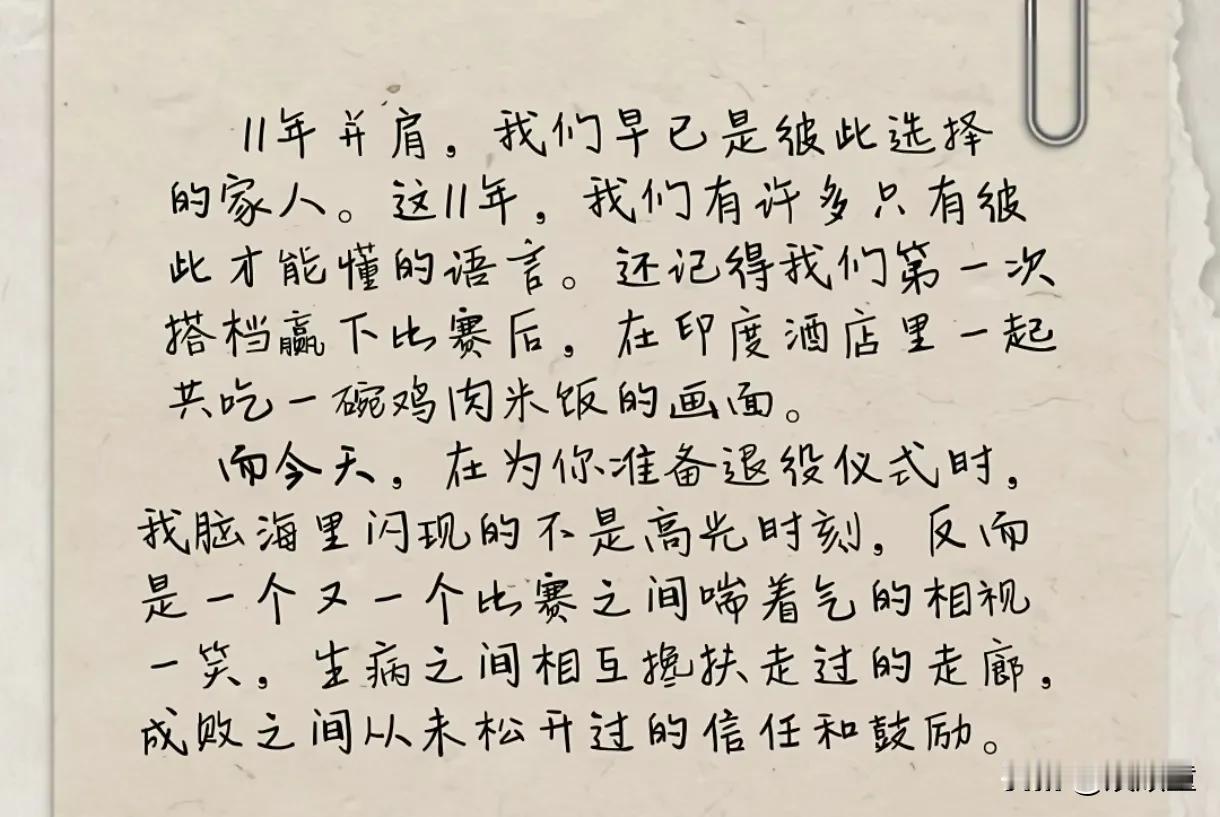 11年并肩，我们早已是彼此选择
的家人。这11年，我们有许多只有彼
此才能懂的语言。还记得我们第一次
搭档赢下比赛后，在印度酒店里一起
共吃一碗鸡肉米饭的画面。
而今天，在为你准备退役仪式时，
我脑海里闪现的不是高光时刻，反而
是一个又一个比赛之间喘着气的相视
一笑，生病之间相互搀扶走过的走廊，
成败之间从未松开过的信任和鼓励。